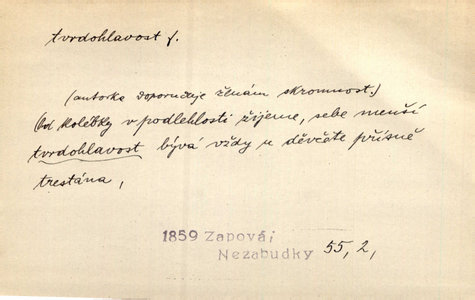 tvrdohlavost f.
(autorka doporučuje ženám skromnost.)
Od kolébky v podlehlosti žijeme, sebe menší
tvrdohlavost bývá vždy u děvčete přísně
trestána,
1859 Zapová;
Nezabudky 55, 2,